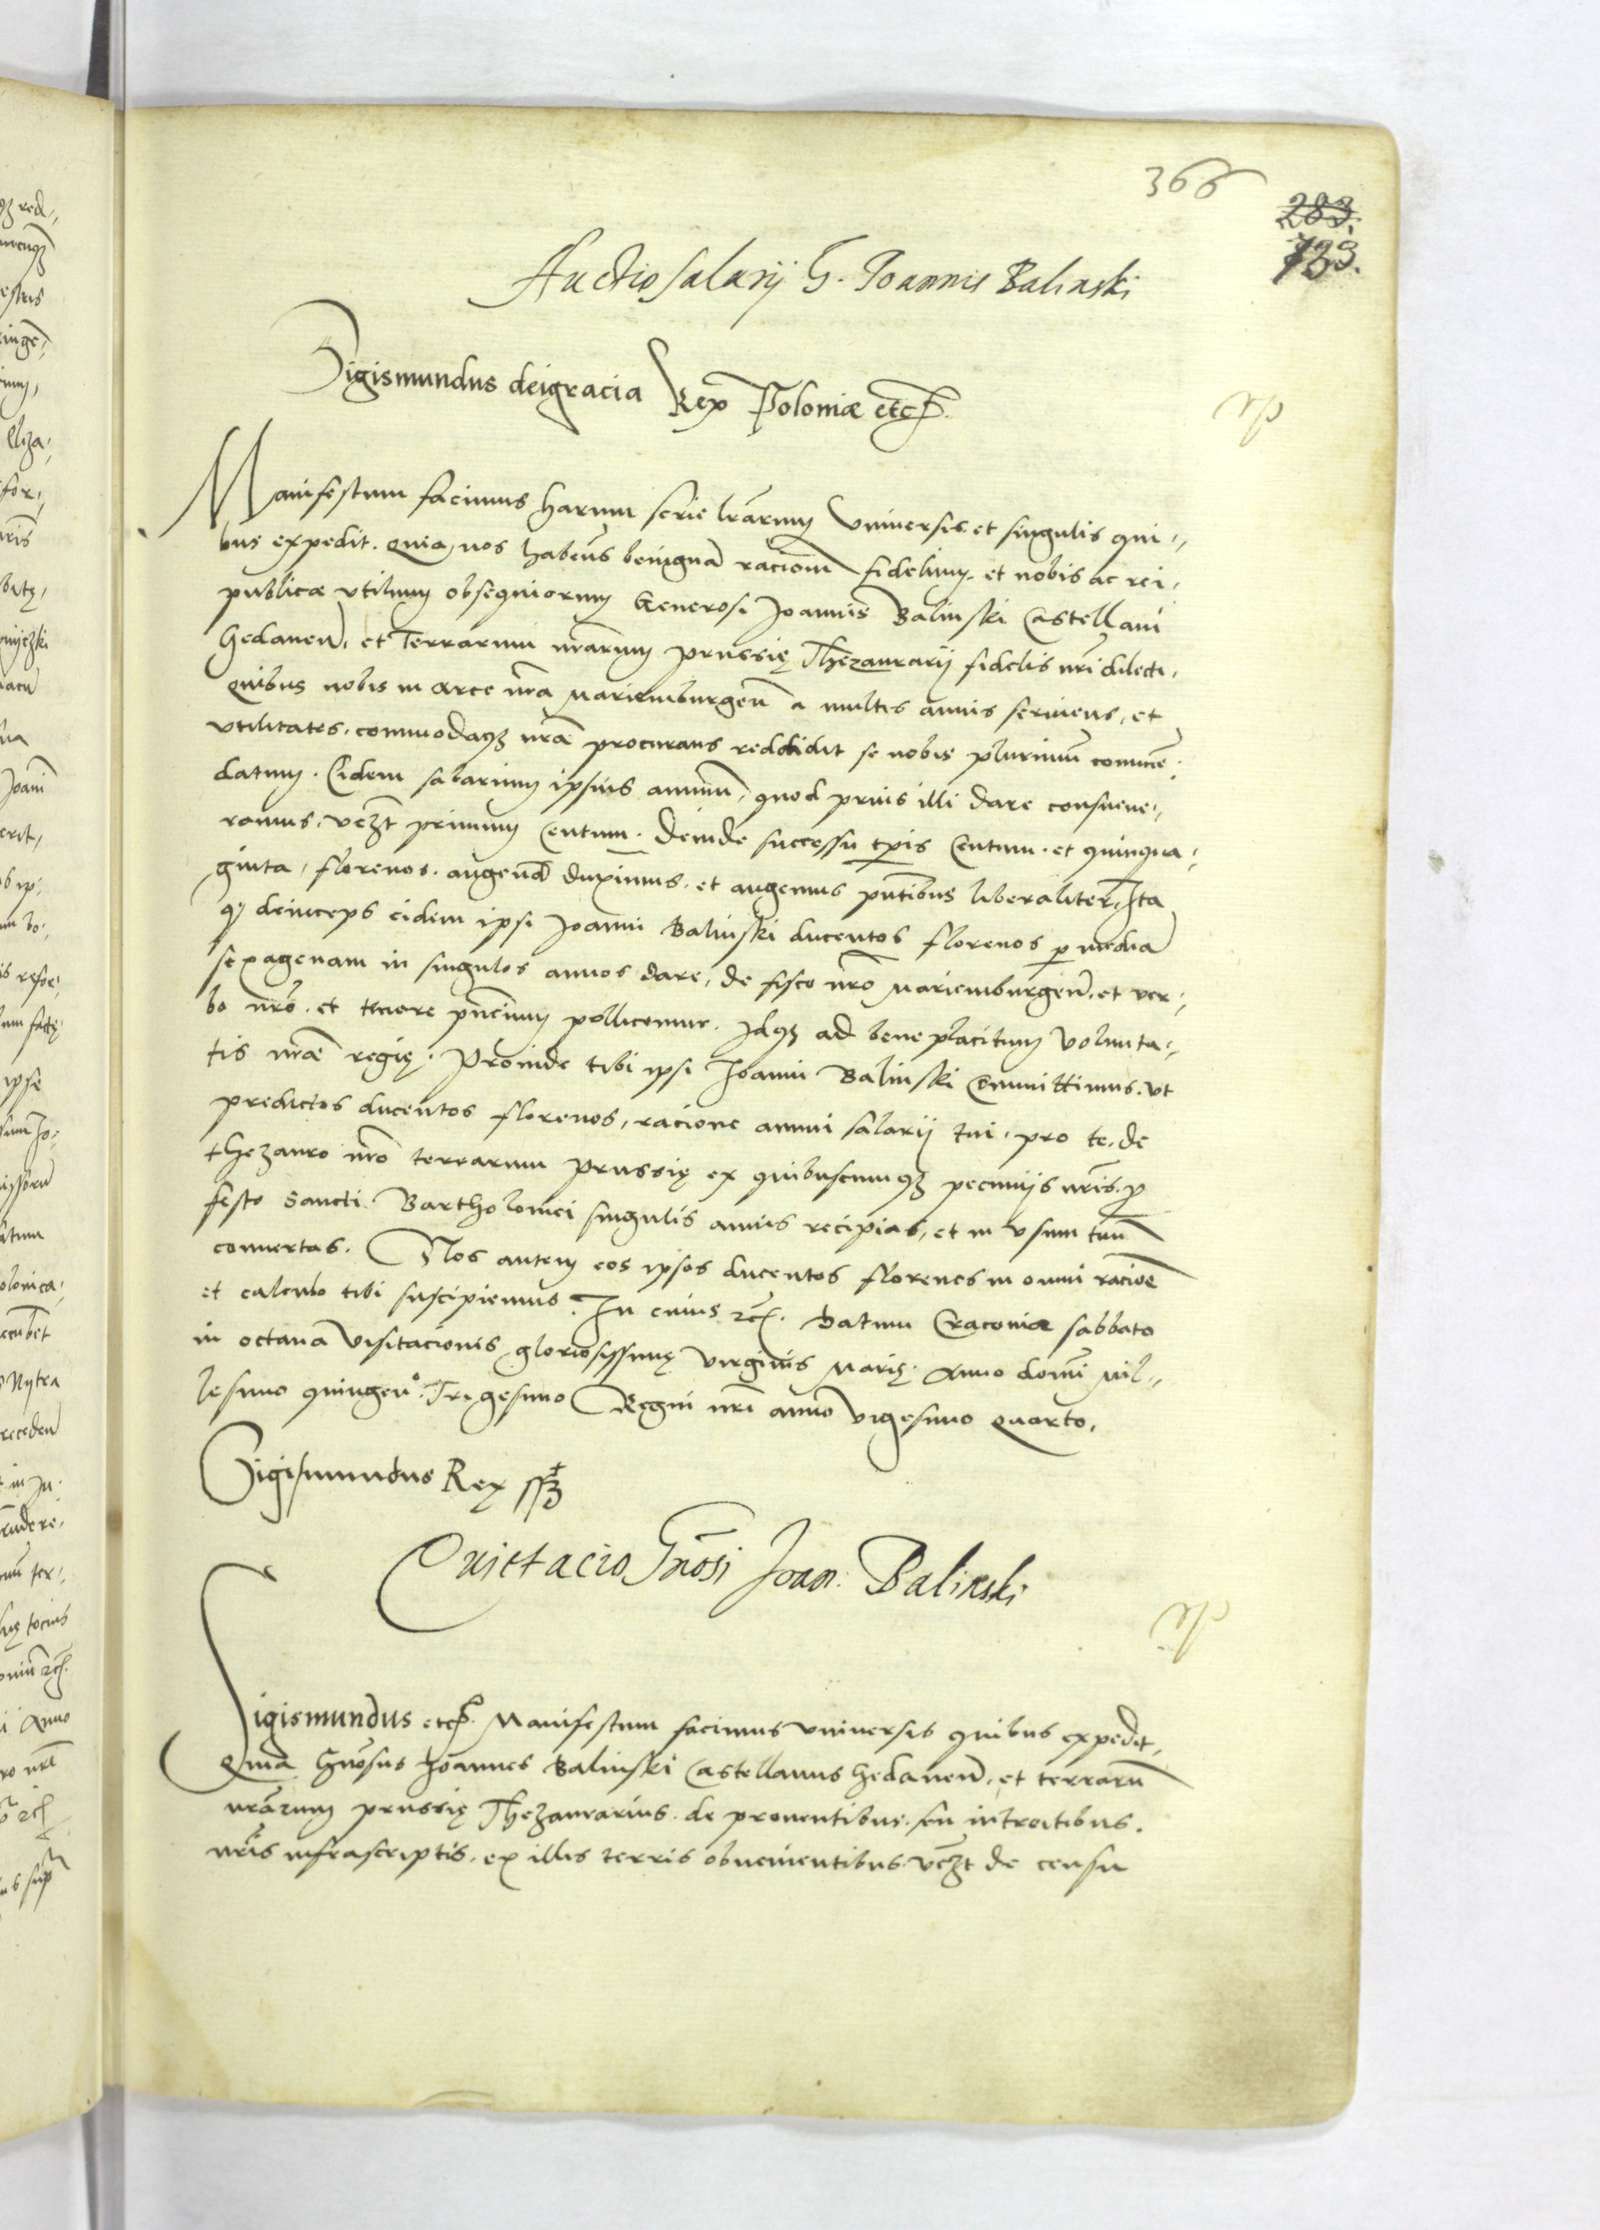 366
283.
733.
Auctio salarij G. Joannis Balinski
Sigismundus dei gracia Rex Poloniæ etc.
Manifestum facimus harum serie lr̃arum Vniversis et singulis qui„
bus expedit. Quia nos habeñs benignã racionẽ fidelium et nobis ac rei„
publicæ vtilium obsequiorum Generosi Joannis Balinski Castellani
Gedaneñ, et Terrarum nr̃arum prussię Thezaurarij fidelis nr̃i dilecti,
Quibus nobis in arce nr̃a Mariemburgeñ a multis annis serviens, et
vtilitates, commodaqʒ nr̃a procurans reddidit se nobis plurimũ commẽ„
datum. Eidem salarium ipsius annuũ, quod prius illi dare consueue„
ramus, vczt primum Centum. Deinde successu tp̃is Centum et quinqua„
ginta, florenos. augend̃ duximus, et augemus pñtibus liberaliter. Ita
q̃ deinceps eidem ipsi Joanni Balinski ducentos florenos p media
sexagenam in singulos annos dare, de fisco nr̃o Mariemburgeñ. et ver„
bo nr̃o. et tenore pñcium pollicemur. Idqʒ ad beneplacitum volunta„
tis nr̃æ regię. Proinde tibi ipsi Joanni Balinski Committimus. vt
predictos ducentos florenos, racione annui salarij tui, pro te, de
thezauro nr̃o terrarum prussię ex quibuscumqʒ pecunijs nr̃is, p
festo Sancti Bartholomei singulis annis recipias, et in vsum tuũ
conuertas. Nos autem eos ipsos ducentos florenos in omni raciõe
et calculo tibi suscipiemus. In cuius rc̃. Datum Cracoviæ sabbato
in octaua visitacionis gloriosissimę virginis Marię. Anno domĩ Mil„
lesimo quingeñ°. Trigesimo Regni nr̃i anno vigesimo quarto.
Sigismundus Rex sszt
Quictacio Gñosi Joan. Balinski
Sigismundus etc. Manifestum facimus vniversis quibus expedit,
Quia Gñosus Joannes Balinski Castellanus Gedaneñ, et terrarũ
nr̃arum prussię Thezaurarius. de prouentibus seu introitibus
nr̃is infrascriptis, ex illis terris obuenientibus, vczt de censu